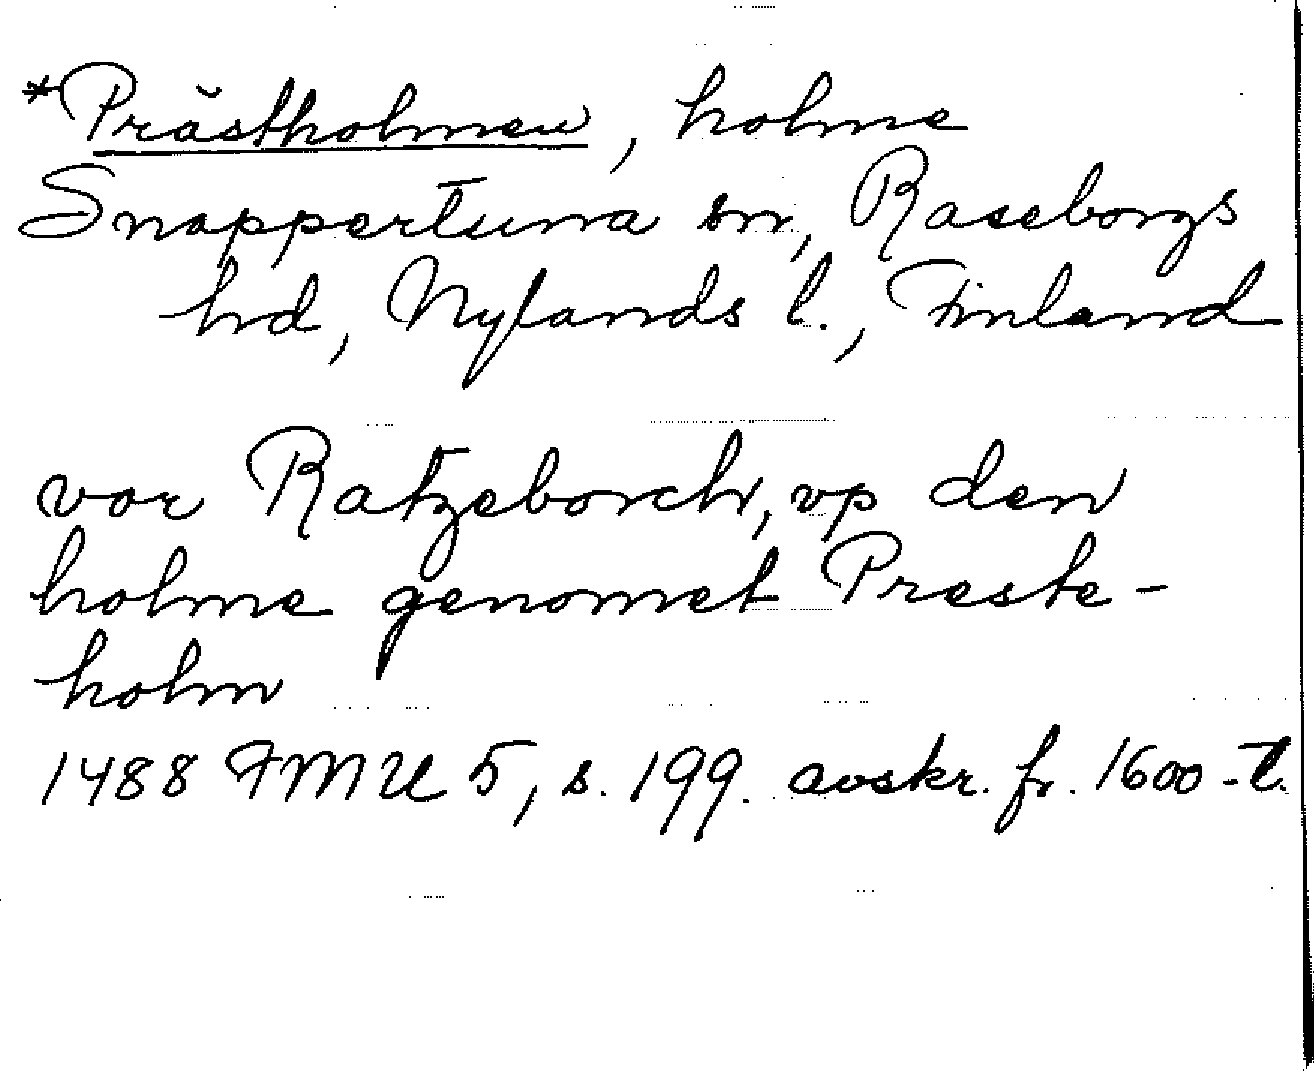 *Prästholmen, holme
Snappertuna sn, Raseborgs
hd, Nylands l., Finland
vor Ratzeborch, vp den
holme genomet Preste-
holm
1488 FMU 5, s. 199. avskr. fr. 1600-t.